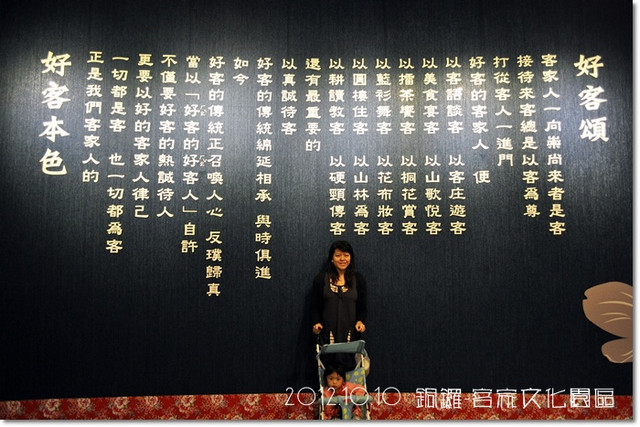 好客頌
客家人一向崇尚來者是客
接待來客總是以客為尊
打從客人一進門
好客的客家人 便
以客語談客 以客庄遊客
以美食宴客 以山歌悅客
以擂茶饗客 以桐花賞客
以藍衫舞客 以花布妝客
以圓樓住客 以山林為客
以耕讀教客 以硬頸傳客
還有最重要的
以真誠待客
好客的傳統綿延相承 與時俱進
如今
好客的傳統正召喚人心 反璞歸真
當以「好客的好客人」自許
不僅要好客的熱誠待人
更要以好的客家人律己
一切都是客 也一切都為客
正是我們客家人的
好客本色
2012.10.10 銅鑼 客家文化園區